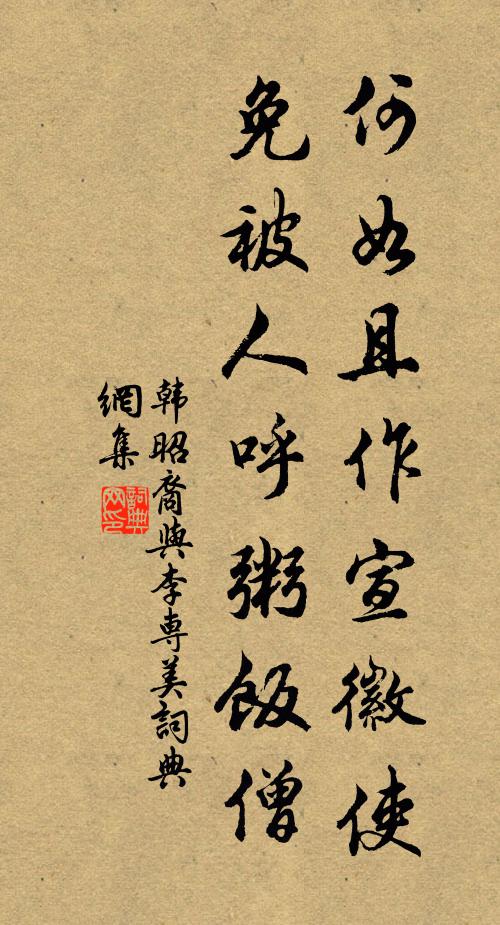 何如且作宣徽使
免被人呼粥飯僧
韩昭裔與李専美詞典
網集
詞典
网印